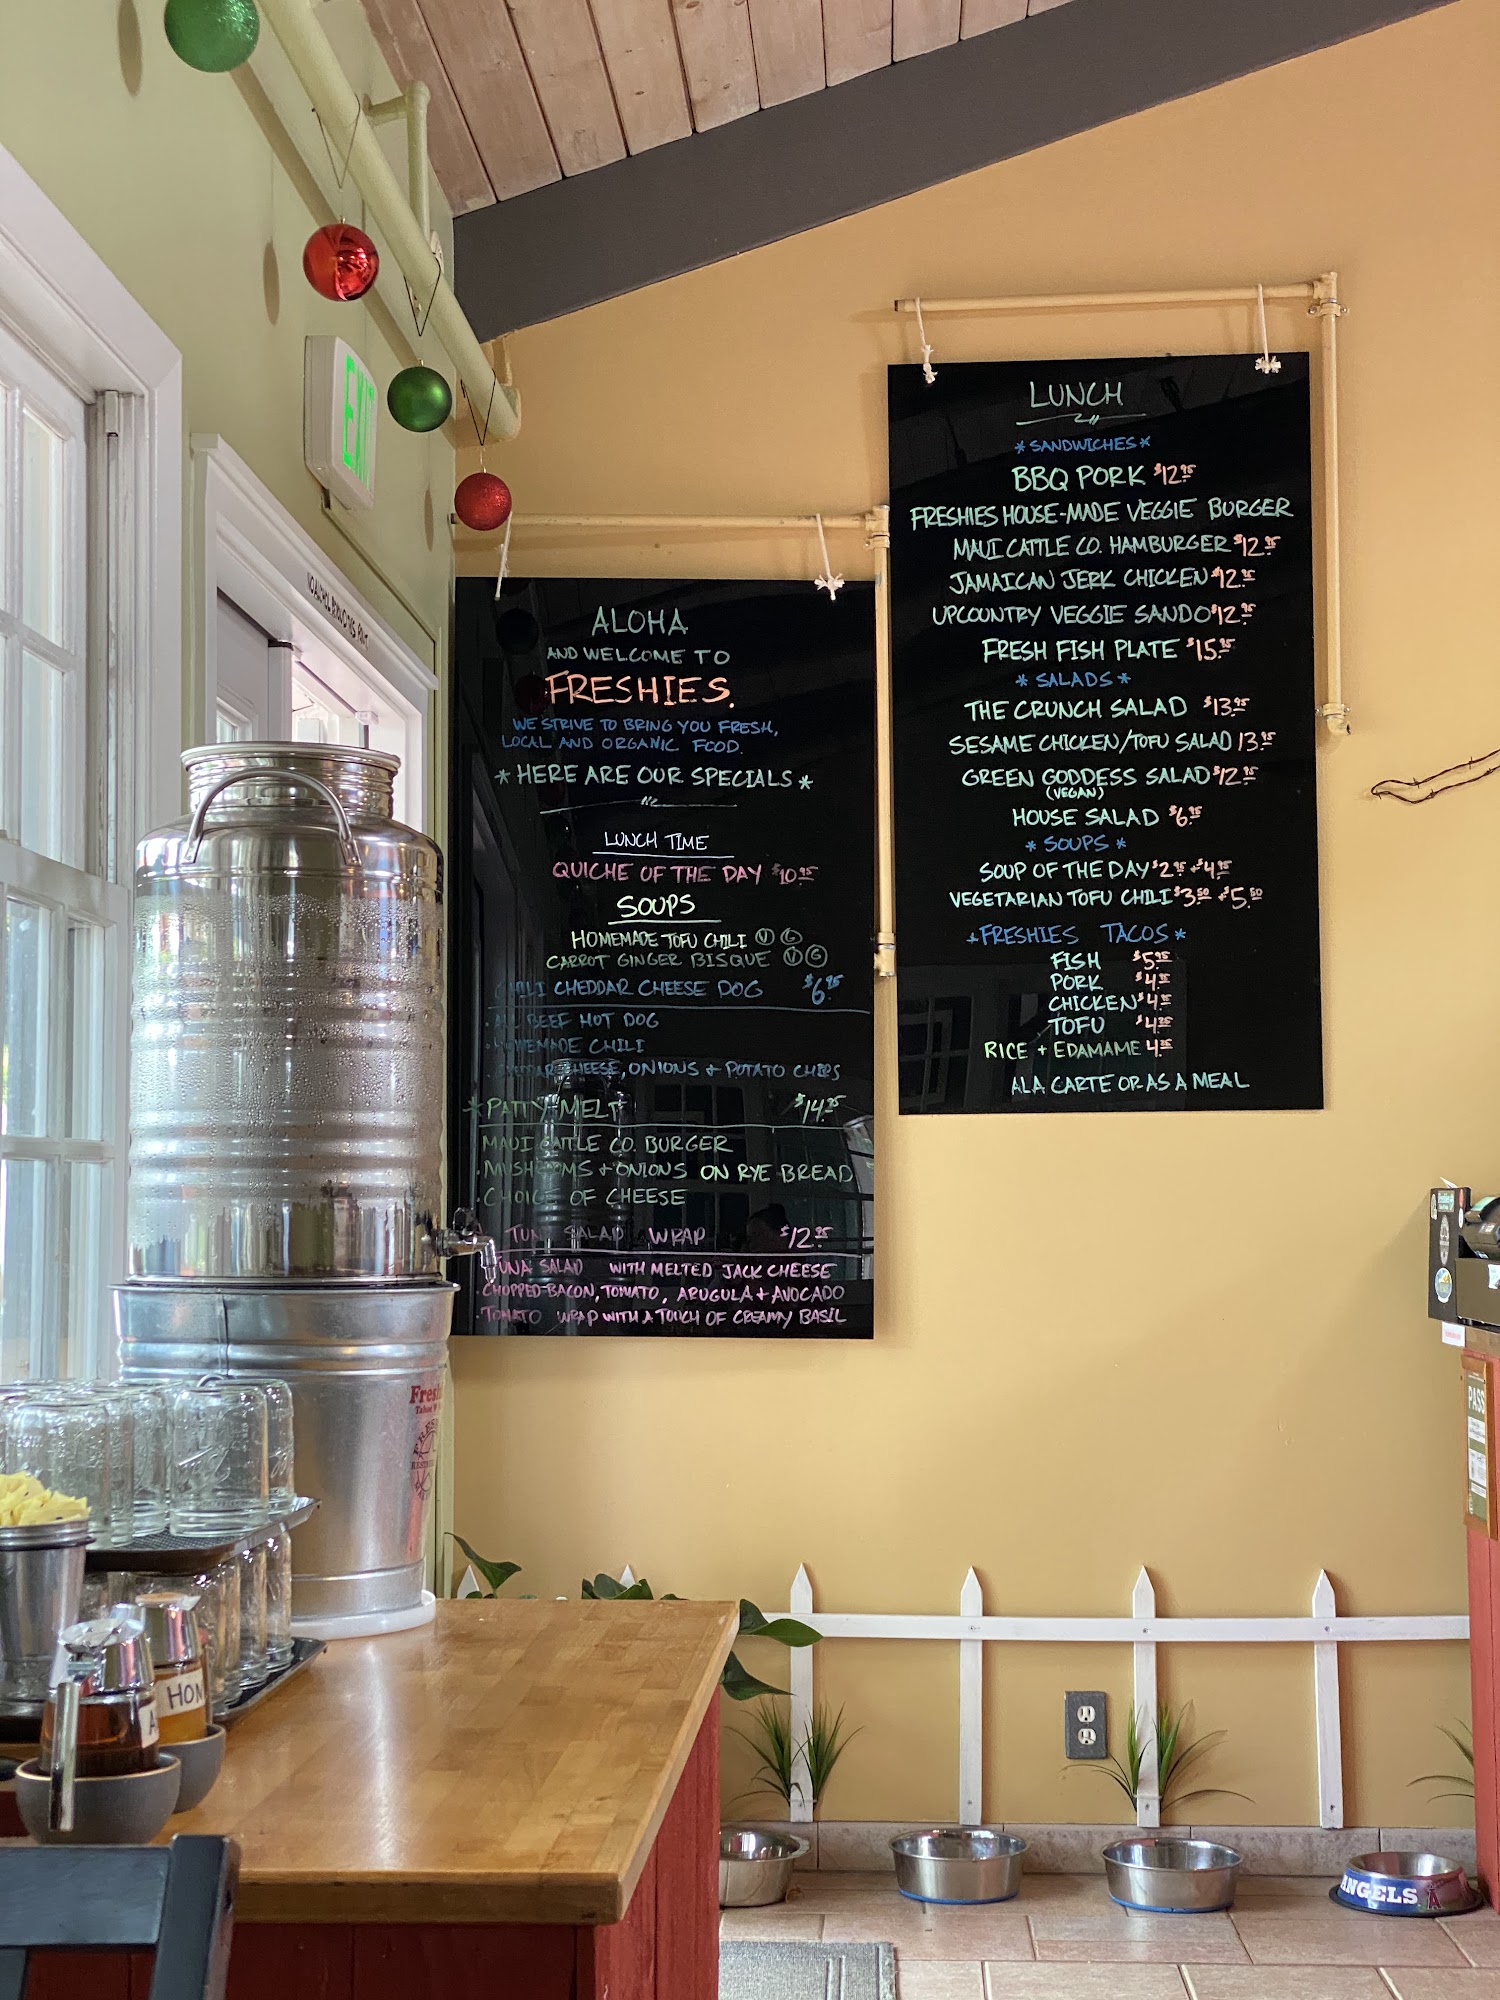 EXIT
ALOHA
AND WELCOME TO
FRESHIES.
WE STRIVE TO BRING YOU FRESH,
LOCAL AND ORGANIC FOOD.
* HERE ARE OUR SPECIALS *
LUNCH TIME
QUICHE OF THE DAY $10.95
SOUPS
HOMEMADE TOFU CHILI V G
CARROT GINGER BISQUE V G
CHILI CHEDDAR CHEESE DOG $6.95
• ALL BEEF HOT DOG
• HOMEMADE CHILI
• CHEDDAR CHEESE, ONIONS + POTATO CHIPS
* PATTY MELT $14.25
MAUI CATTLE CO. BURGER
• MUSHROOMS + ONIONS ON RYE BREAD
• CHOICE OF CHEESE
TUNA SALAD WRAP $12.95
TUNA SALAD WITH MELTED JACK CHEESE
• CHOPPED BACON, TOMATO, ARUGULA + AVOCADO
• TOMATO WRAP WITH A TOUCH OF CREAMY BASIL
LUNCH
* SANDWICHES *
BBQ PORK $12.95
FRESHIES HOUSE-MADE VEGGIE BURGER
MAUI CATTLE CO. HAMBURGER $12.95
JAMAICAN JERK CHICKEN $12.95
UPCOUNTRY VEGGIE SANDO $12.95
FRESH FISH PLATE $15.95
* SALADS *
THE CRUNCH SALAD $13.95
SESAME CHICKEN/TOFU SALAD 13.95
GREEN GODDESS SALAD $12.95
(VEGAN)
HOUSE SALAD $6.95
* SOUPS *
SOUP OF THE DAY $2.95 + $4.95
VEGETARIAN TOFU CHILI $3.50 + $5.50
* FRESHIES TACOS *
FISH $5.95
PORK $4.95
CHICKEN $4.95
TOFU $4.25
RICE + EDAMAME 4.25
ALA CARTE OR AS A MEAL
Fresh
HON
PASS
ANGELS